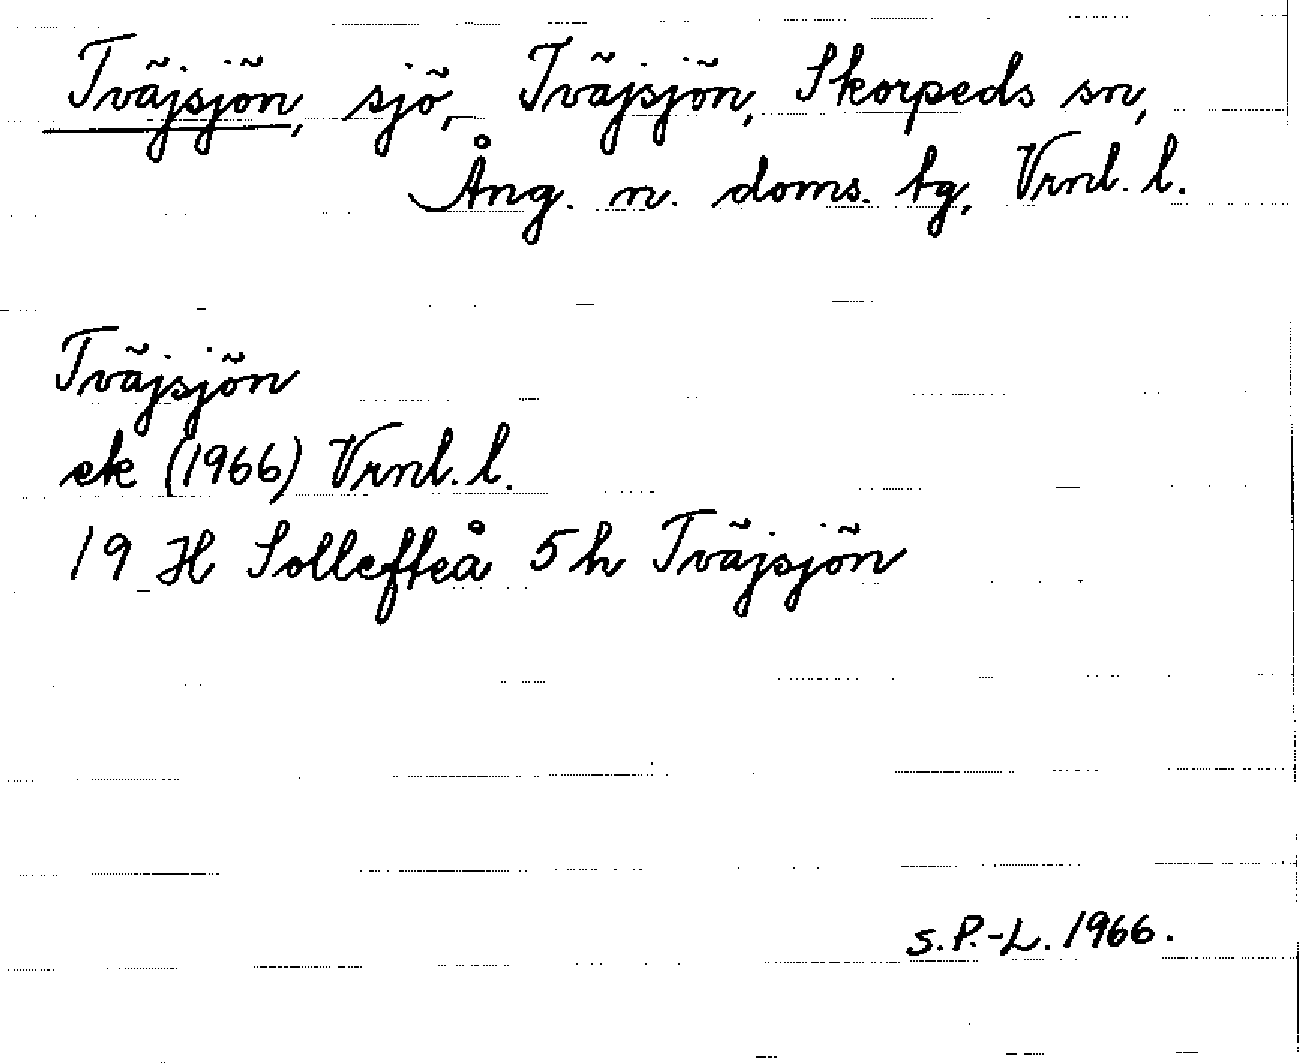 Tväjsjön, sjö, Tväjsjön, Skorpeds sn,
Ång. n. doms. tg, Vrnl. l.
Tväjsjön
ek (1966) Vrnl. l.
19 H Sollefteå 5h Tväjsjön
S.P.-L. 1966.